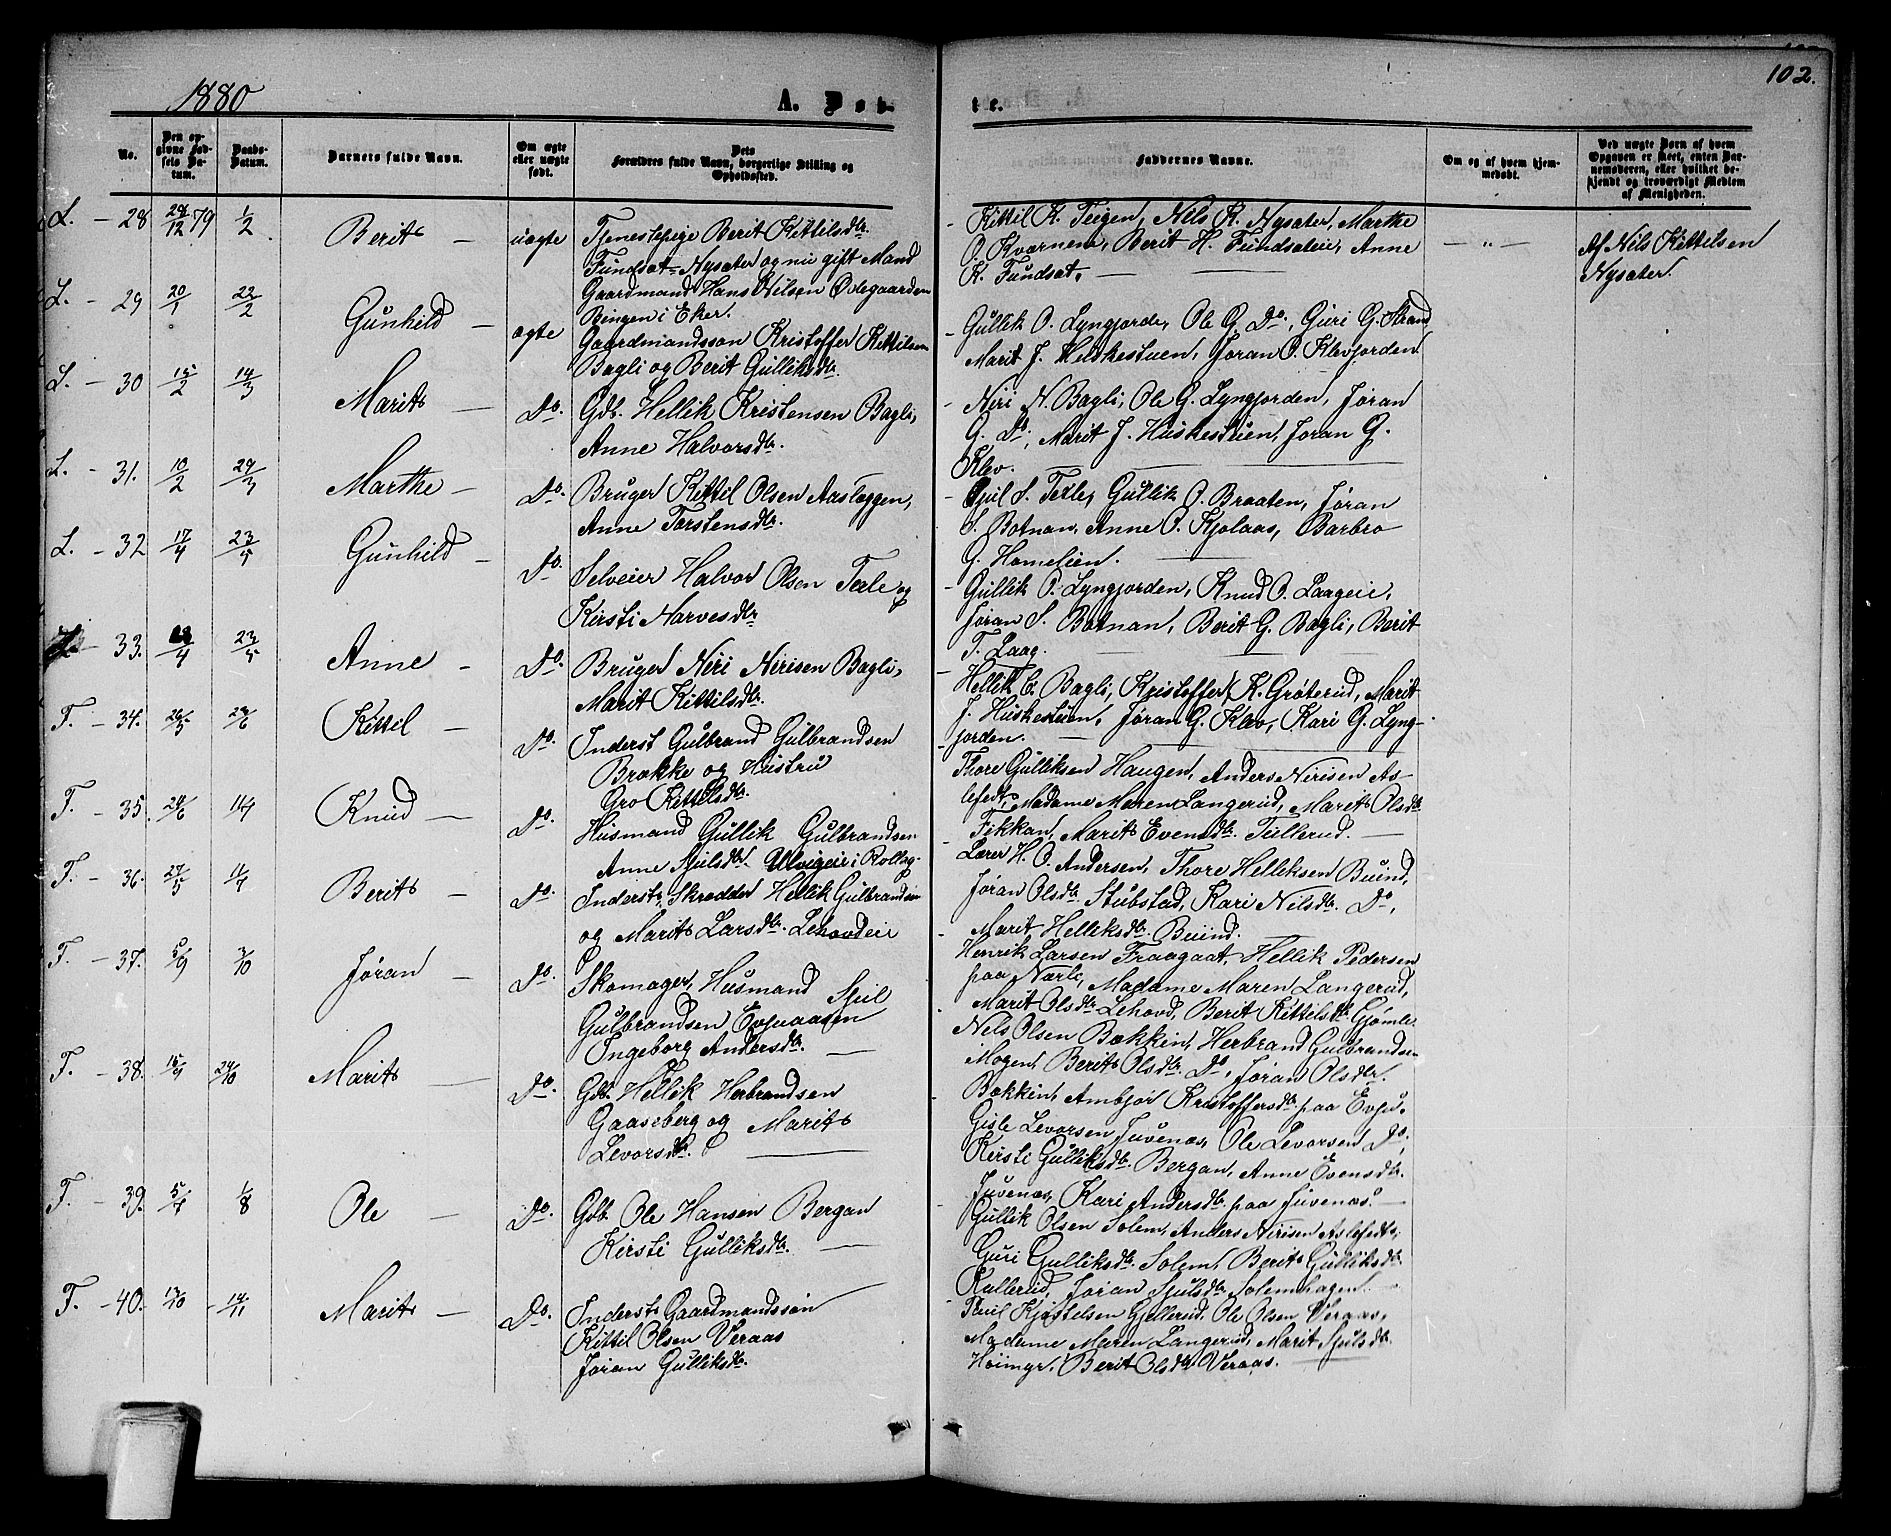 102.
1880
A. Døb-
te.
No.
Den op-
givne Fød-
sels Da-
tum.
Daabs-
Datum.
Barnets fulde Navn.
Om ægte
eller uægte
født.
Dets
Forældres fulde Navn, borgerlige Stilling og
Opholdssted.
Faddernes Navne.
Om og af hvem hjem-
medøbt.
Ved uægte Børn af hvem
Opgaven er skeet, enten Bar-
nemoderen, eller hvilket be-
kjendt og troværdigt Medlem
af Menigheden.
L. - 28 28/12 79 1/2 Berit - uægte
Tjenestepige Berit Kittilsdtr.
Fundsat=Nysæter og nu gift Mand
Gaardmand Hans Nilsen Øvregaarden
Bingen i Eker.
- Kittil K. Teigen, Nils K. Nysæter, Marthe
O. Kvarnem, Berit H. Fundsateie, Anne
K. Fundsat. —
— " —
Af Nils Kittilsen
Nysæter.
L. - 29 20/1 22/2 Gunhild - ægte
Gaardmandssøn Kristoffer Kittilsen
Bagli og Berit Gulliksdtr.
Gullik O. Lyngjorde, Ole G. Do., Guri G. Strand
Marit J. Huskestuen, Jøran O. Klevjorden.
L. - 30 15/2 14/3 Marit - Do.
Gdb. Hellik Kristensen Bagli,
Anne Halvorsdtr.
- Niri N. Bagli, Ole G. Lyngjorden, Jøran
G. Do., Marit J. Huskestuen, Jøran G.
Klev.
L. - 31. 10/2 29/3 Marthe - Do.
Bruger Kittil Olsen Aasleggen,
Anne Torstensdtr.
- Sjul S. Texle, Gullik O. Braaten, Jøran
S. Botnan, Anne O. Kjølaas, Barbro
G. Homelien.
L. - 32 17/4 23/5 Gunhild - Do.
Selveier Halvor Olsen Texle og
Kirsti Narvesdtr
Gullik O. Lyngjorden, Knud O. Laageie,
Jøran S. Botnan, Berit G. Bagli, Berit
T. Laag.
L. - 33. 23/5 Anne - Do.
Bruger Niri Nirisen Bagli,
Marit Kittilsdtr.
- Hellik C. Bagli, Kristoffer K. Grøterud, Marit
J. Huskestuen, Jøran G. Klev, Kari G. Lyng-
jorden.
F. - 34. Kittil - Do.
Inderst Gulbrand Gulbrandsen
Brække og Hustru
Gro Kittilsdtr.
Thore Gulliksen Haugen, Anders Nirisen As-
lefedt, Madame Maren Langerud, Marit Olsdtr
Fikkan, Marit Evensdtr. Tullerud. —
F. - 35. Knud - Do.
Husmand Gullik Gulbrandsen
Anne Sjulsdtr. Ulvigeie i Rollag.
Lærer H. O. Andersen, Thore Helliksen Buind,
Jøran Olsdtr. Stubstad, Kari Nilsdtr. Do,
Marit Helliksdtr. Buind.
F. - 36. 27/5 11/7 Berit - Do.
Inderst, Skredder Hellik Gulbrandsen
og Marit Larsdtr. Lehovdeie
Henrik Larsen Fraagaat, Hellik Pedersen
paa Nærle, Madame Maren Langerud,
Marit Olsdtr Lehovd, Berit Kittilsdtr Gjømle.
F. - 37. 5/9 3/10 Jøran - Do.
Skomager, Husmand Sjul
Gulbrandsen Evjuaasen
Ingeborg Andersdtr. —
Nels Olsen Bækkin, Herbrand Gulbrandsen
Mogen, Berit Olsdtr. Do, Jøran Olsdtr.
Bækkin, Ambjør Kristoffersdtr paa Evju.
F. - 38. 15/9 24/10 Marit - Do.
Gdb. Hellik Herbrandsen
Gaaseberg og Marit
Levorsdtr. —
Gisle Levorsen Juvenæs, Ole Levorsen Do,
Kirsti Gulliksdtr. Bergan, Anne Evensdtr.
Juvenæs, Kari Andersdtr paa Juvenæs. —
F. - 39. 5/7 1/8 Ole - Do.
Gdb. Ole Hansen Bergan
Kirsti Gulliksdtr. —
Gullik Olsen Solem, Anders Nirisen Aslefedt,
Guri Gulliksdtr Solem, Berit Gulliksdtr
Rullerud, Jøran Sjulsdtr Solemhagen.
F. - 40. 14/11 Marit - Do.
Inderst Gaardmandssøn
Kittil Olsen Veraas
Jøran Gulliksdtr.
Paul Kjøstelsen Gjellerud, Ole Olsen Veraas,
Madame Maren Langerud, Marit Sjulsdtr
Høimyr, Berit Olsdtr Veraas. —